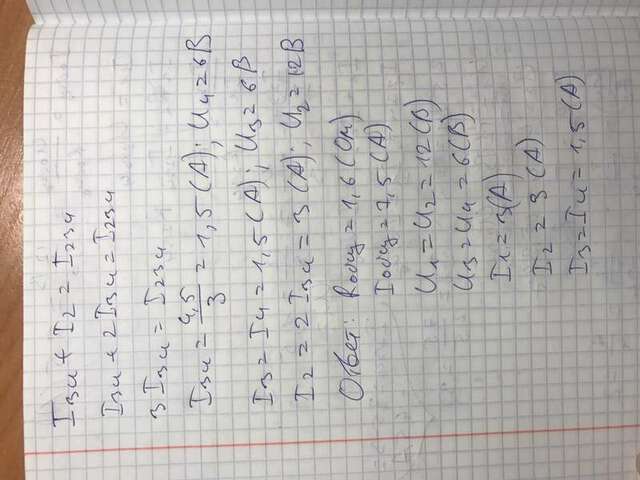 I₃₄ + I₂ = I₂₃₄
I₃₄ + 2I₃₄ = I₂₃₄
3I₃₄ = I₂₃₄
I₃₄ = 4,5/3 = 1,5 (А); U₄ = 6В
I₃ = I₄ = 1,5 (А); U₃ = 6В
I₂ = 2I₃₄ = 3 (А); U₂ = 12В
Ответ: Rобщ = 1,6 (Ом)
Iобщ = 7,5 (А)
U₁ = U₂ = 12 (В)
U₃ = U₄ = 6 (В)
I₁ = 3 (А)
I₂ = 3 (А)
I₃ = I₄ = 1,5 (А)